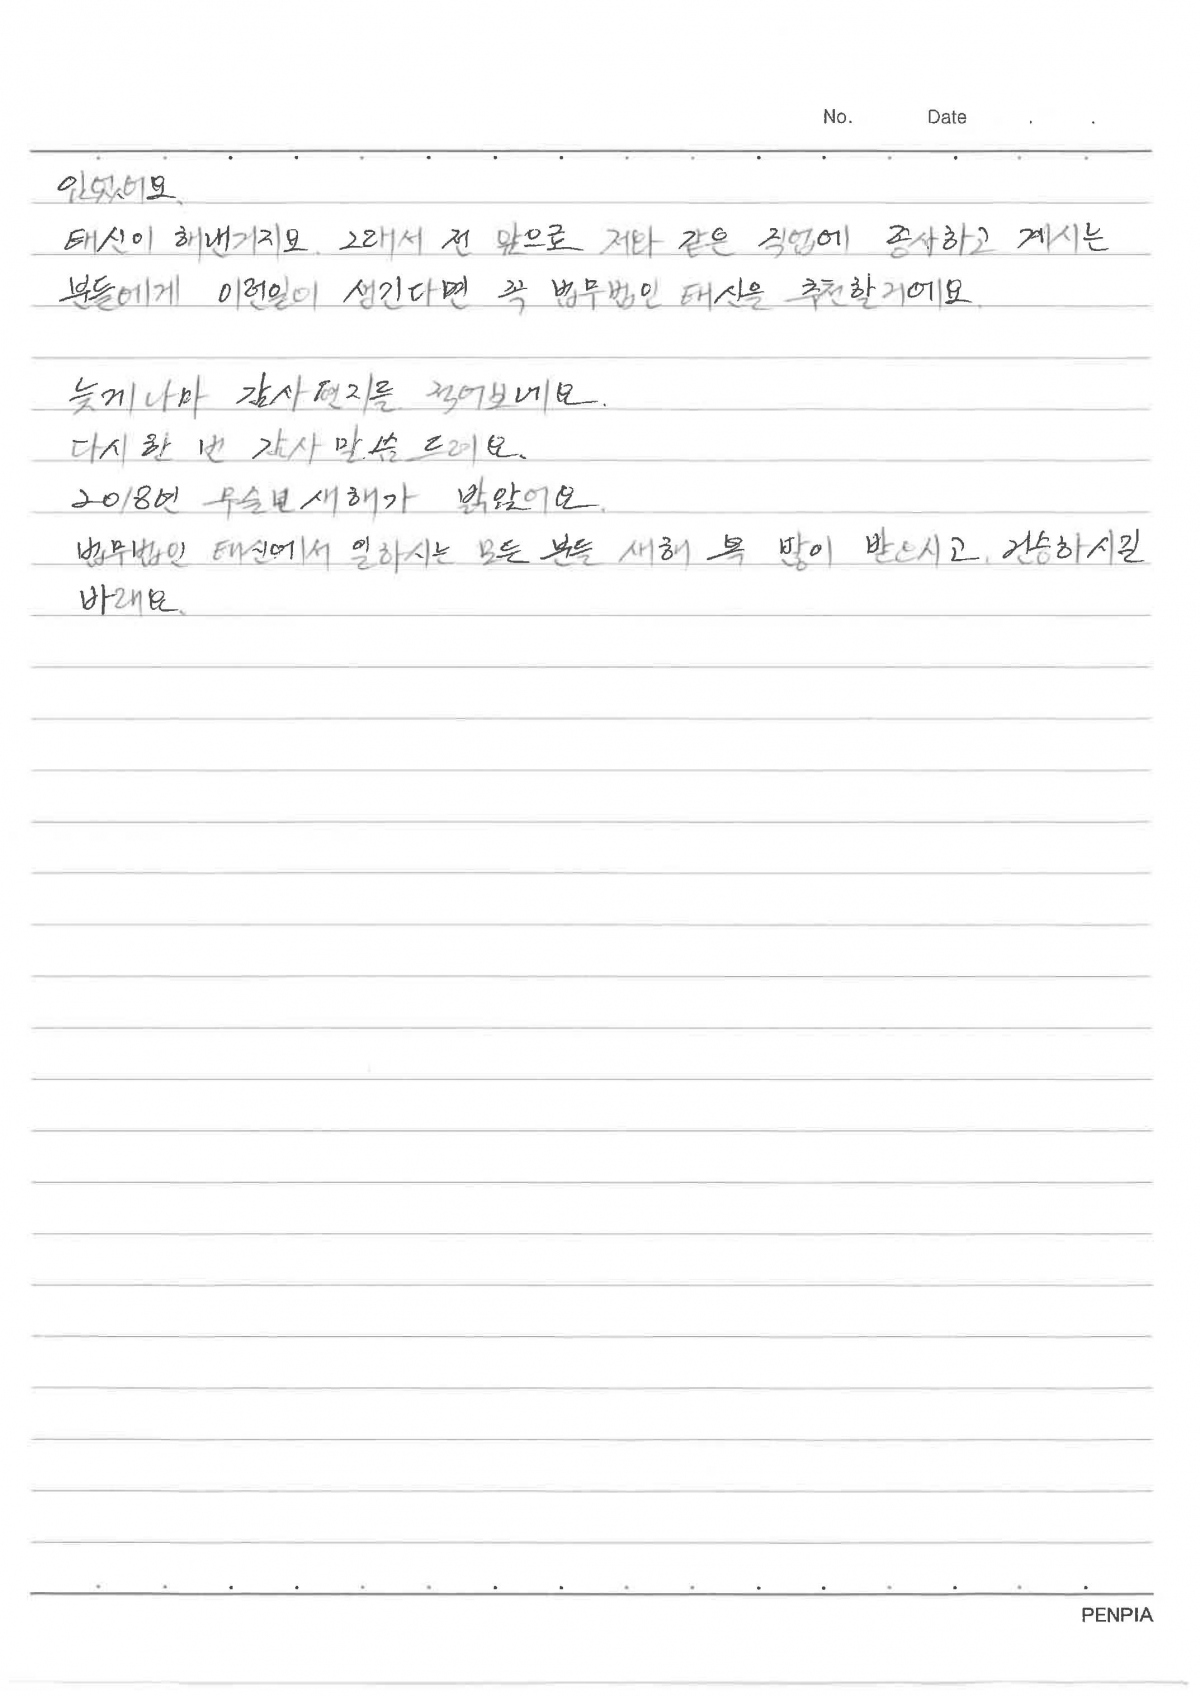 No. Date . .
있었어요.
태신이 해낸거지요. 그래서 전 앞으로 저와 같은 직업에 종사하고 계시는
분들에게 이런일이 생긴다면 꼭 법무법인 태신을 추천할거에요.
늦게나마 감사편지를 적어보네요.
다시 한 번 감사 말씀 드려요.
2018년 무술년 새해가 밝았어요.
법무법인 태신에서 일하시는 모든 분들 새해 복 많이 받으시고, 건승하시길
바래요.
PENPIA